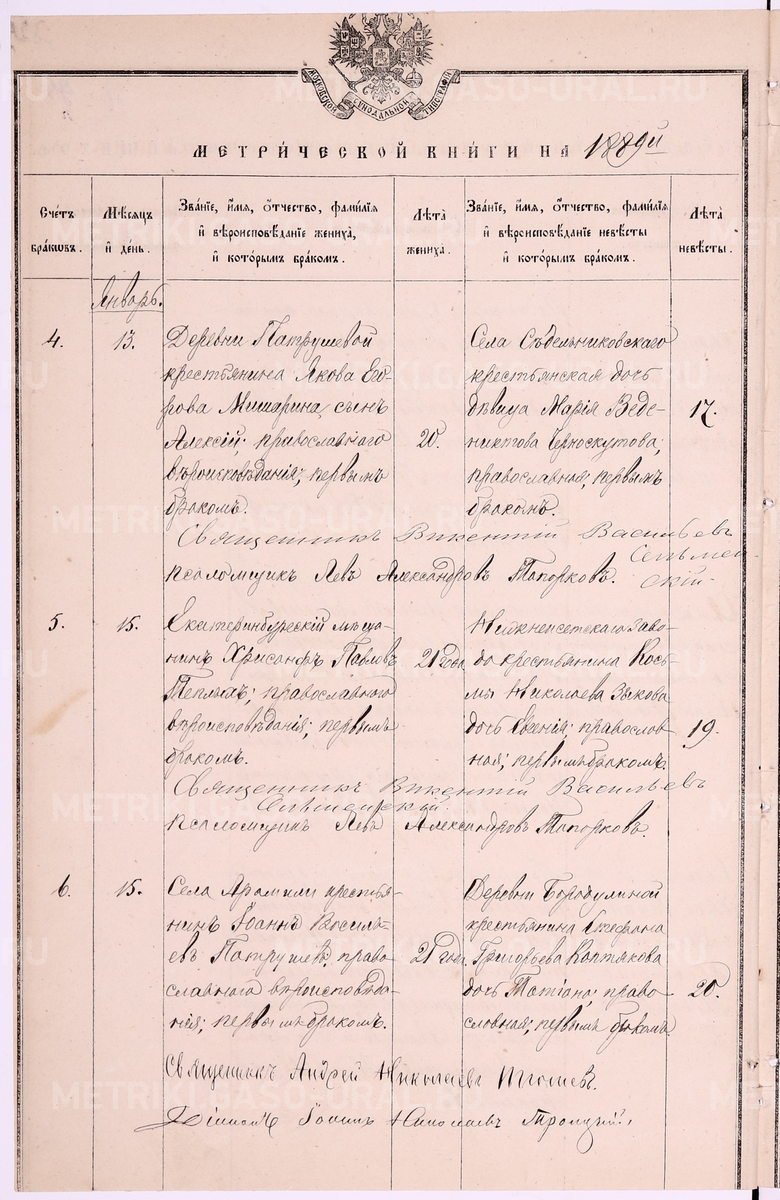 МОСКОВСКОЙ СѴНОДАЛЬНОЙ ТИПОГРАФІИ
МЕТРИ́ЧЕСКОЙ КНИ́ГИ НА 1889й
Счетъ бракѡвъ.
Мѣсяцъ и́ день.
Зва́нїе, и҆́мя, ѻ҆́тчество, фами́лїя и҆ вѣроисповѣ́данїе жениха̀, и҆ которымъ бра́комъ.
Лѣ̑та жениха.
Зва́нїе, и҆́мя, ѻ҆́тчество, фами́лїя и҆ вѣроисповѣ́данїе невѣ́сты и҆ которымъ бра́комъ.
Лѣ̑та невѣ́сты.
Январь.
4.
13.
Деревни Патрушевой
крестьянина Якова Его-
рова Мишарина, сынъ
Алексій; православнаго
вѣроисповѣданія; первымъ
бракомъ.
20.
Села Сѣдельниковскаго
крестьянская дочь
дѣвица Марія Веде-
никтова Черноскутова;
православная; первымъ
бракомъ.
17.
Священникъ Викентій Васильевъ
псаломщикъ Левъ Александровъ Топорковъ.
5.
15.
Екатеринбургскій мѣща-
нинъ Хрисанфъ Павловъ
Теплыхъ; православнаго
вѣроисповѣданія; первымъ
бракомъ.
21 года
Нижнеисетскаго заво-
да крестьянина Кось-
мы Николаева Зыкова
дочь Евгенія; православ-
ная; первымъ бракомъ.
19.
Священникъ Викентій Васильевъ
псаломщикъ Левъ Александровъ Топорковъ.
6.
15.
Села Арамили крестья-
нинъ Іоаннъ Василь-
евъ Патрушевъ, право-
славнаго вѣроисповѣда-
нія; первымъ бракомъ.
21 года.
Деревни Бородулиной
крестьянина Стефана
Григорьева Коптякова
дочь Татіана; право-
славная; первымъ бракомъ.
20.
Священникъ Андрей Николаевъ
Діаконъ Іоаннъ Николаевъ Троицкій.
METRIKI.GASO-URAL.RU